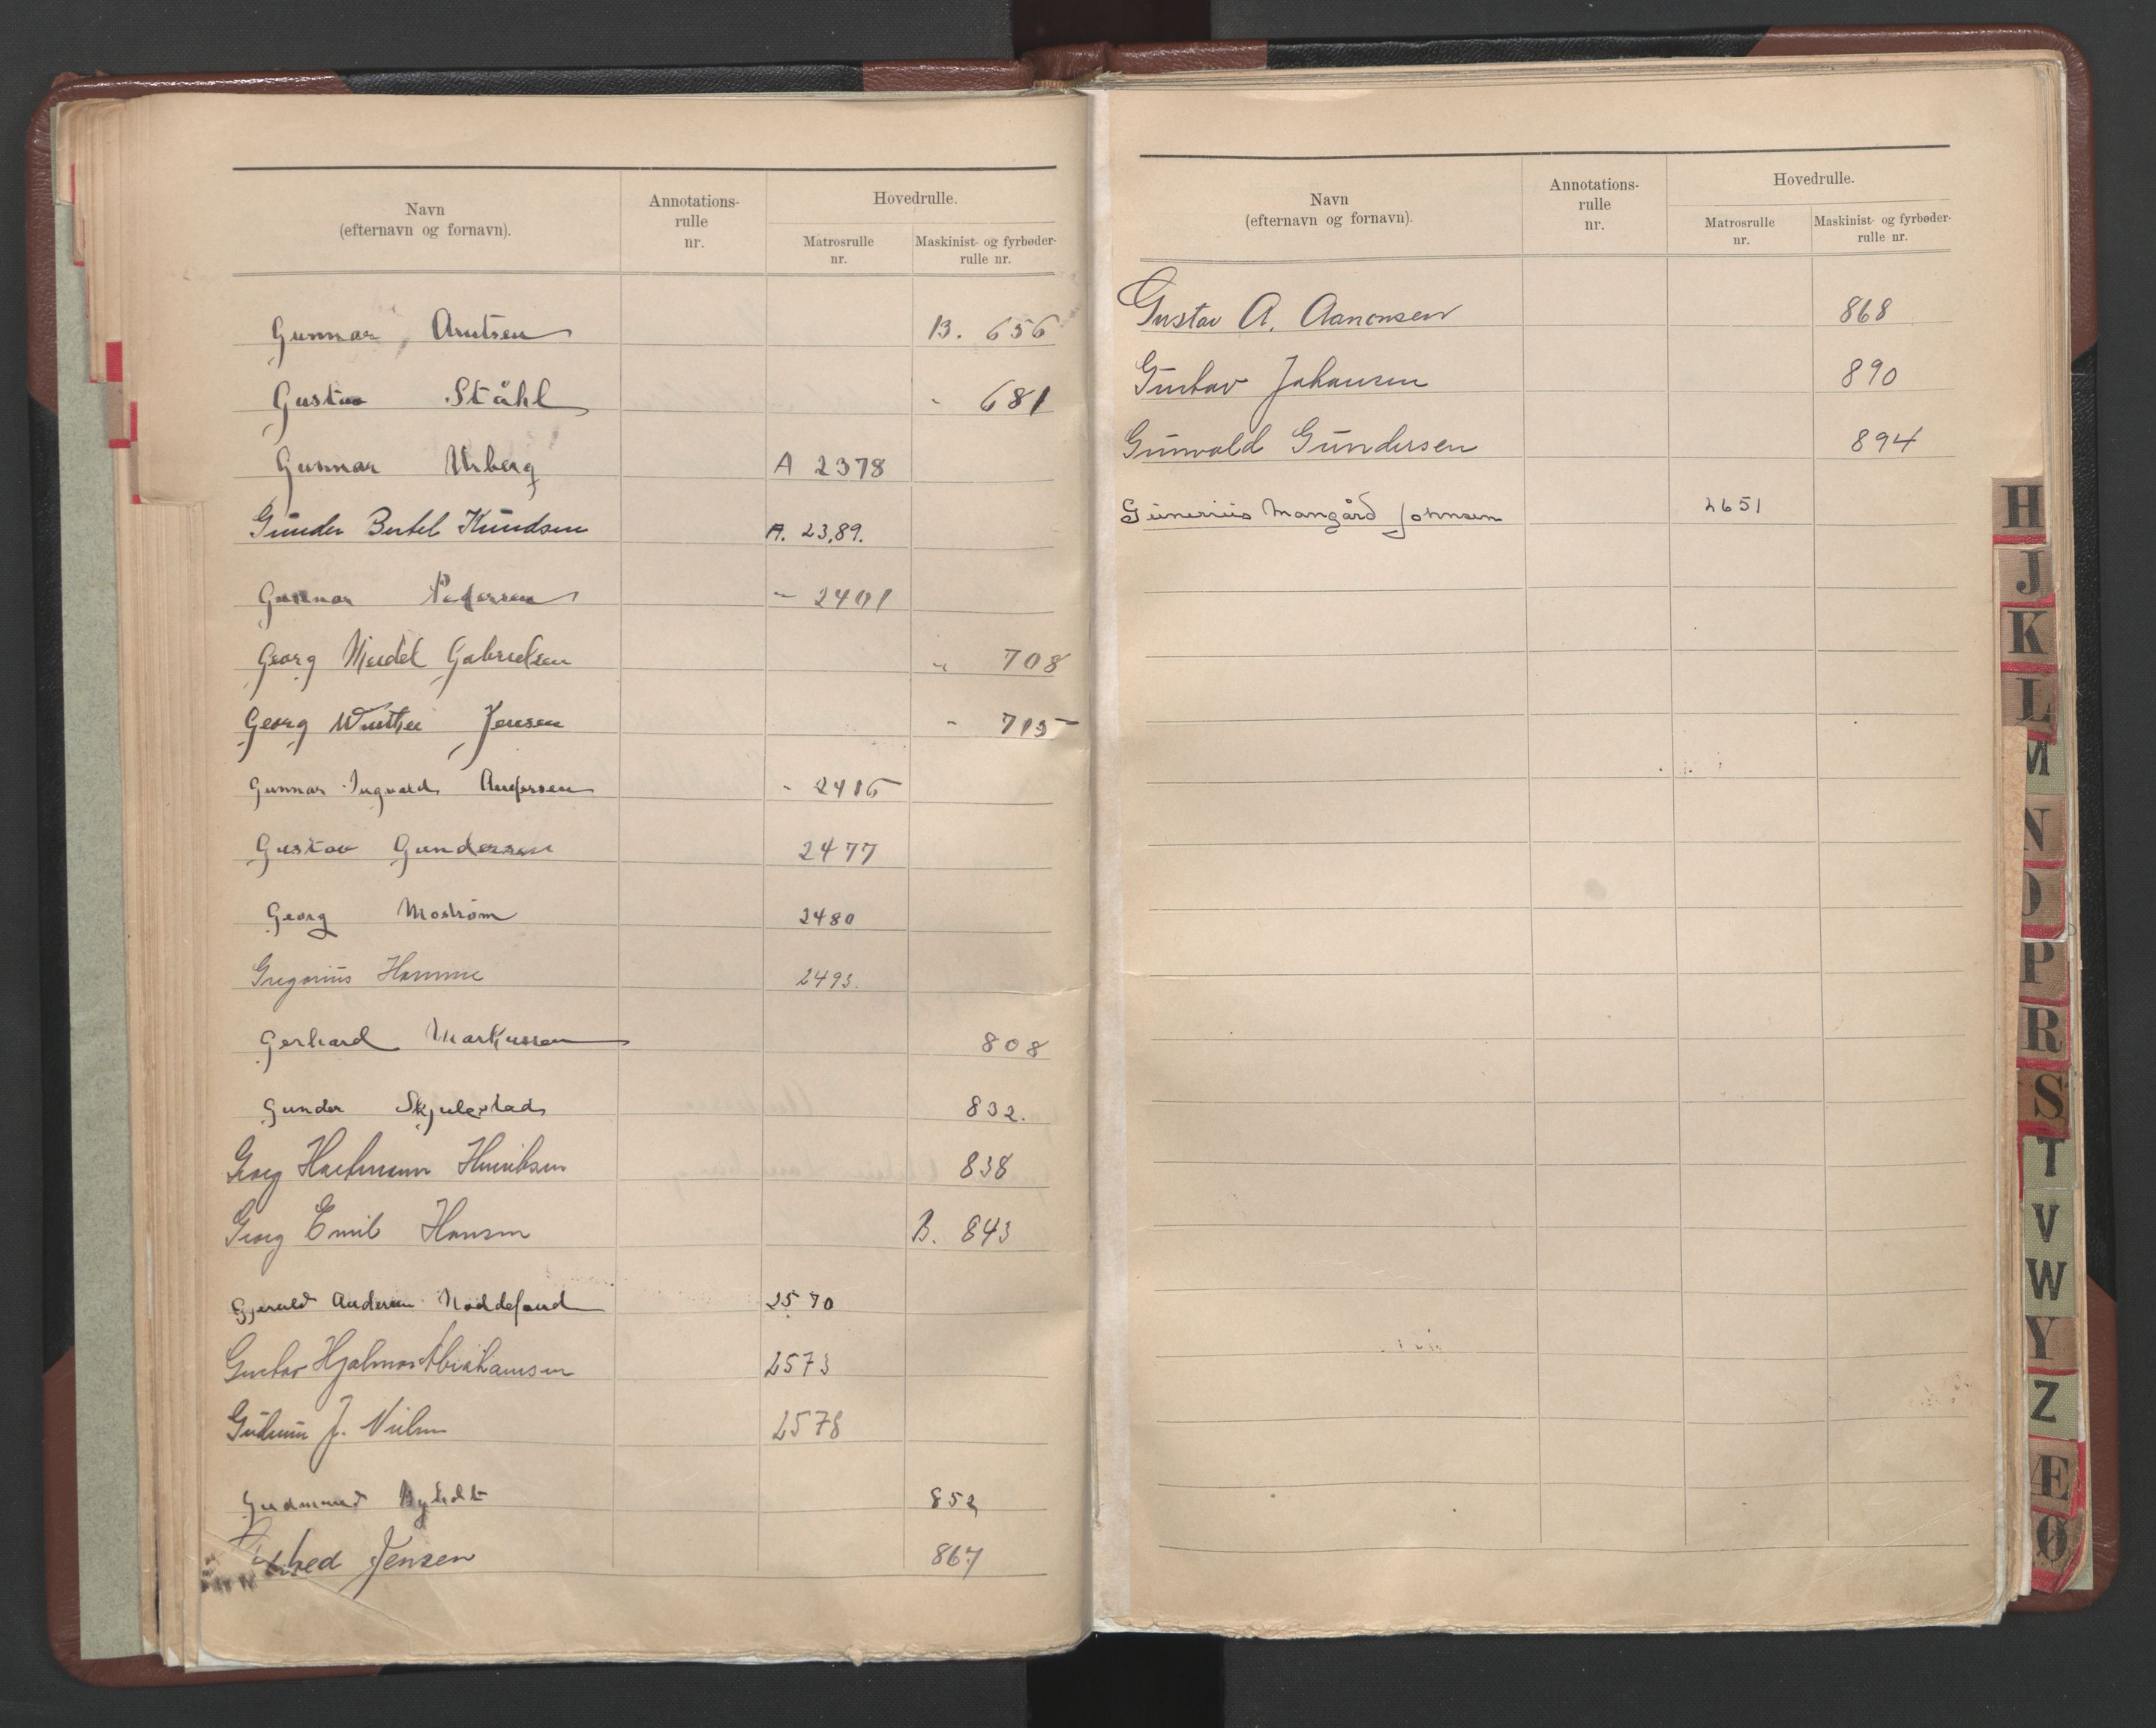 Navn
(efternavn og fornavn).
Annotations-
rulle
nr.
Hovedrulle.
Matrosrulle
nr.
Maskinist- og fyrbøder-
rulle nr.
Gunnar Arntsen B. 656
Gustav Ståhl - 681
Gunnar Urberg A 2378
Gunder Bertel Knudsen A. 2389.
Gunnar Pedersen - 2401
Georg Meidel Gabrielsen - 708
Georg Winther Jensen - 715
Gunnar Ingvald Andersen - 2416
Gustav Gundersen 2477
Georg Mostrøm 2480
Gregorius Hamme 2493.
Gerhard Markussen 808
Gunder Skjulestad 832.
Georg Hartmann Henriksen 838
Georg Emil Hansen B. 843
Gjeruld Andersen Noddeland 2570
Gustav Hjalmar Abrahamsen 2573
J. Nielsen 2578
Gudmund 852
Jensen 867
Navn
(efternavn og fornavn).
Annotations-
rulle
nr.
Hovedrulle.
Matrosrulle
nr.
Maskinist- og fyrbøder-
rulle nr.
Gustav A. Aanonsen 868
Gustav Johansen 890
Gunvald Gundersen 894
Gunerius Mangård Johnsen 2651
H
J
K
L
M
N
O
P
R
S
T
V
W
Y
Z
Æ
Ø